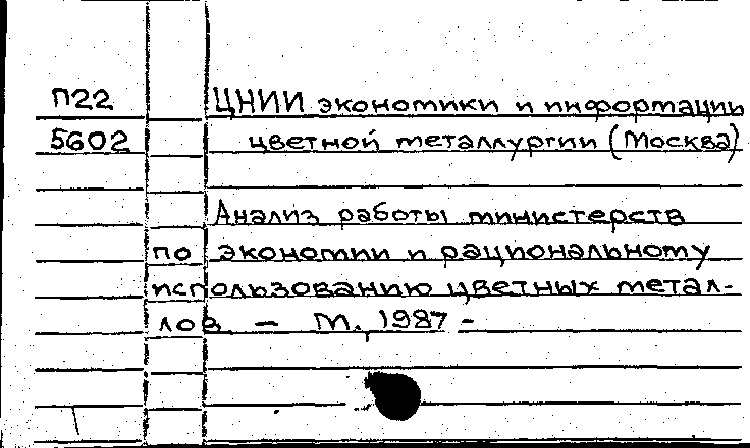 П22 ЦНИИ экономики и информации
5602 цветной металлургии (Москва)
Анализ работы министерств
по экономии и рациональному
использованию цветных метал-
лов. — М., 1987 -